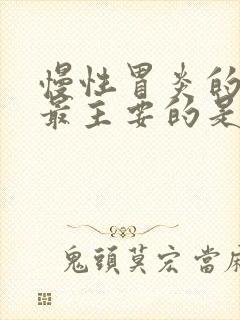 慢性胃炎的
最主要的是
鬼頭莫宏當麻